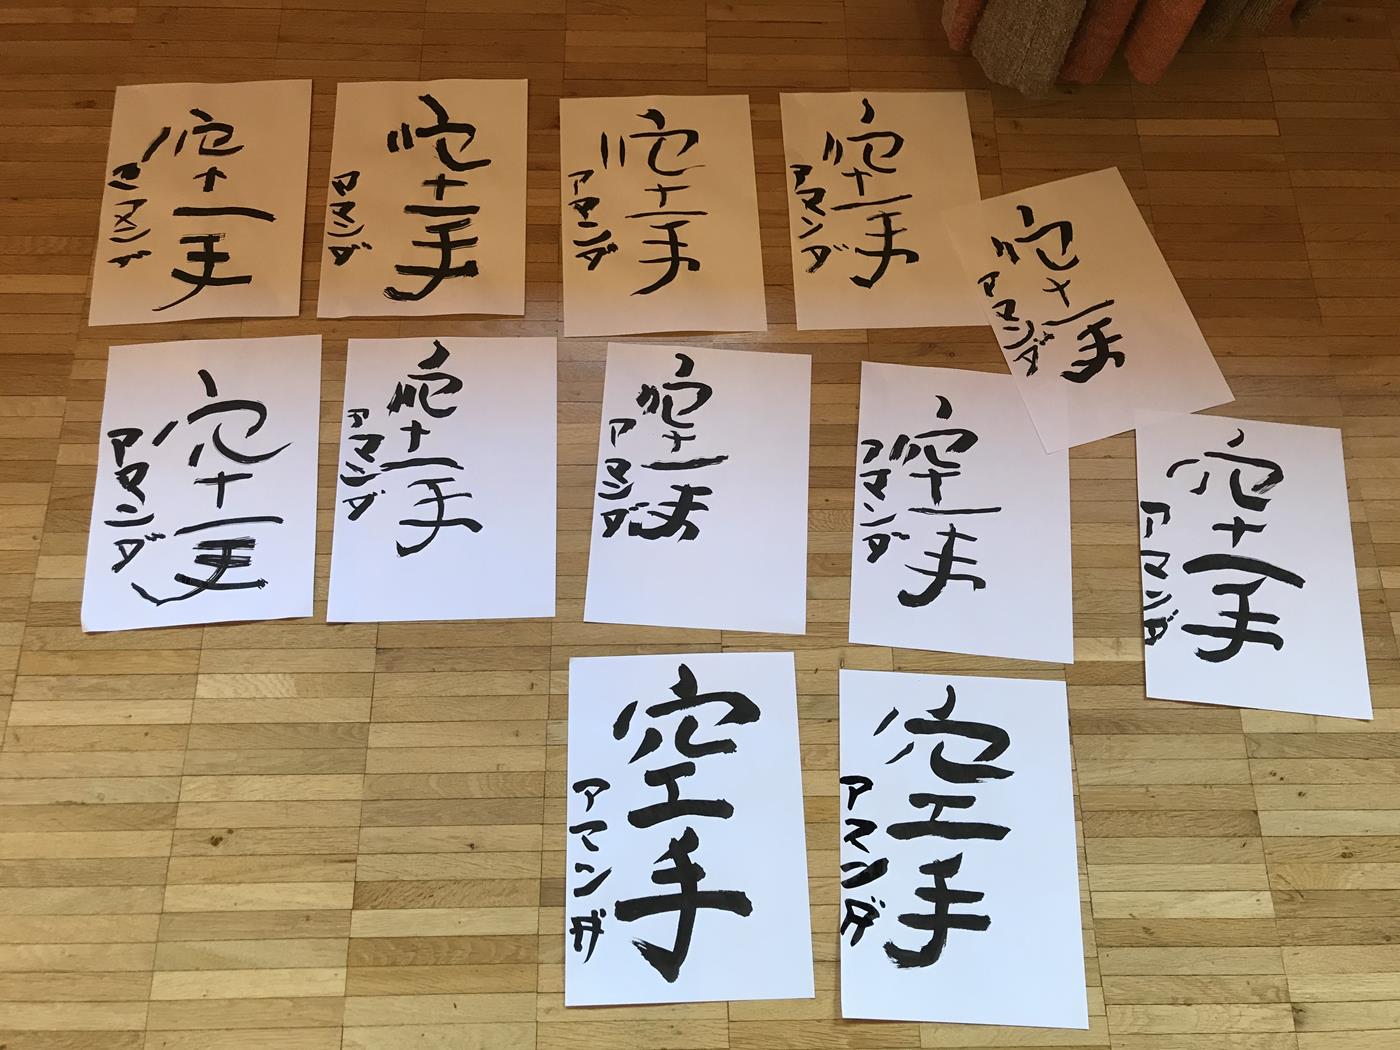 空手
アマンダ
空手
ロマンダ
空手
アマンダ
空手
アマンダ
空手
アマンダ
空手
アマンダ
空手
アマンダ
空手
アマンダ
空手
アマンダ
空手
アマンダ
空手
アマンダ
空手
アマンダ